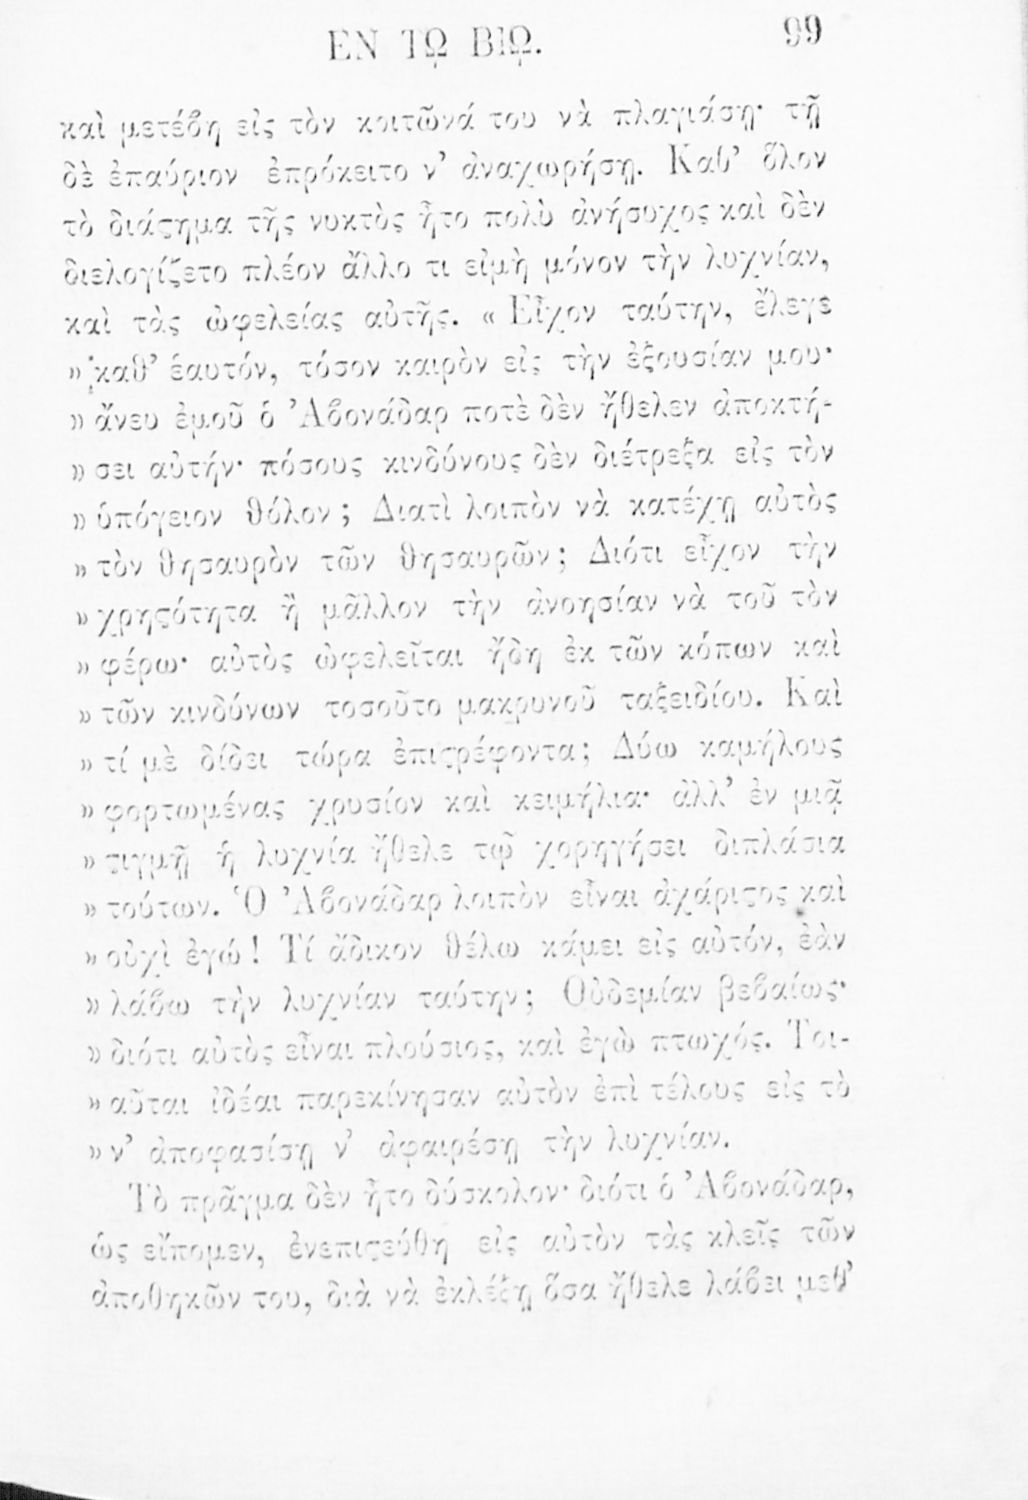 ΕΝ ΤΩ ΒΙΩ. 99
καὶ μετέβη εἰς τὸν κοιτῶνά του νὰ πλαγιάσῃ· τῇ
δὲ ἐπαύριον ἐπρόκειτο ν’ ἀναχωρήσῃ. Καθ’ ὅλον
τὸ διάϛημα τῆς νυκτὸς ἦτο πολὺ ἀνήσυχος καὶ δὲν
διελογίζετο πλέον ἄλλο τι εἰμὴ μόνον τὴν λυχνίαν,
καὶ τὰς ὠφελείας αὐτῆς. « Εἶχον ταύτην, ἔλεγε
» καθ’ ἑαυτόν, τόσον καιρὸν εἰς τὴν ἐξουσίαν μου·
» ἄνευ ἐμοῦ ὁ Ἀβονάδαρ ποτὲ δὲν ἤθελεν ἀποκτή-
» σει αὐτήν· πόσους κινδύνους δὲν διέτρεξα εἰς τὸν
» ὑπόγειον θόλον ; Διατὶ λοιπὸν νὰ κατέχῃ αὐτὸς
» τὸν θησαυρὸν τῶν θησαυρῶν ; Διότι εἶχον τὴν
» χρηϛότητα ἢ μᾶλλον τὴν ἀνοησίαν νὰ τοῦ τὸν
» φέρω· αὐτὸς ὠφελεῖται ἤδη ἐκ τῶν κόπων καὶ
» τῶν κινδύνων τοσοῦτο μακρυνοῦ ταξειδίου. Καὶ
» τί μὲ δίδει τώρα ἐπιϛρέφοντα ; Δύω καμήλους
» φορτωμένας χρυσίον καὶ κειμήλια· ἀλλ’ ἐν μιᾷ
» ϛιγμῇ ἡ λυχνία ἤθελε τῷ χορηγήσει διπλάσια
» τούτων. Ὁ Ἀβονάδαρ λοιπὸν εἶναι ἀχάριϛος καὶ
» οὐχὶ ἐγώ ! Τί ἄδικον θέλω κάμει εἰς αὐτόν, ἐὰν
» λάβω τὴν λυχνίαν ταύτην ; Οὐδεμίαν βεβαίως·
» διότι αὐτὸς εἶναι πλούσιος, καὶ ἐγὼ πτωχός. Τοι-
» αῦται ἰδέαι παρεκίνησαν αὐτὸν ἐπὶ τέλους εἰς τὸ
» ν’ ἀποφασίσῃ ν’ ἀφαιρέσῃ τὴν λυχνίαν.
Τὸ πρᾶγμα δὲν ἦτο δύσκολον· διότι ὁ Ἀβονάδαρ,
ὡς εἴπομεν, ἐνεπιϛεύθη εἰς αὐτὸν τὰς κλεῖς τῶν
ἀποθηκῶν του, διὰ νὰ ἐκλέξῃ ὅσα ἤθελε λάβει μεθ’